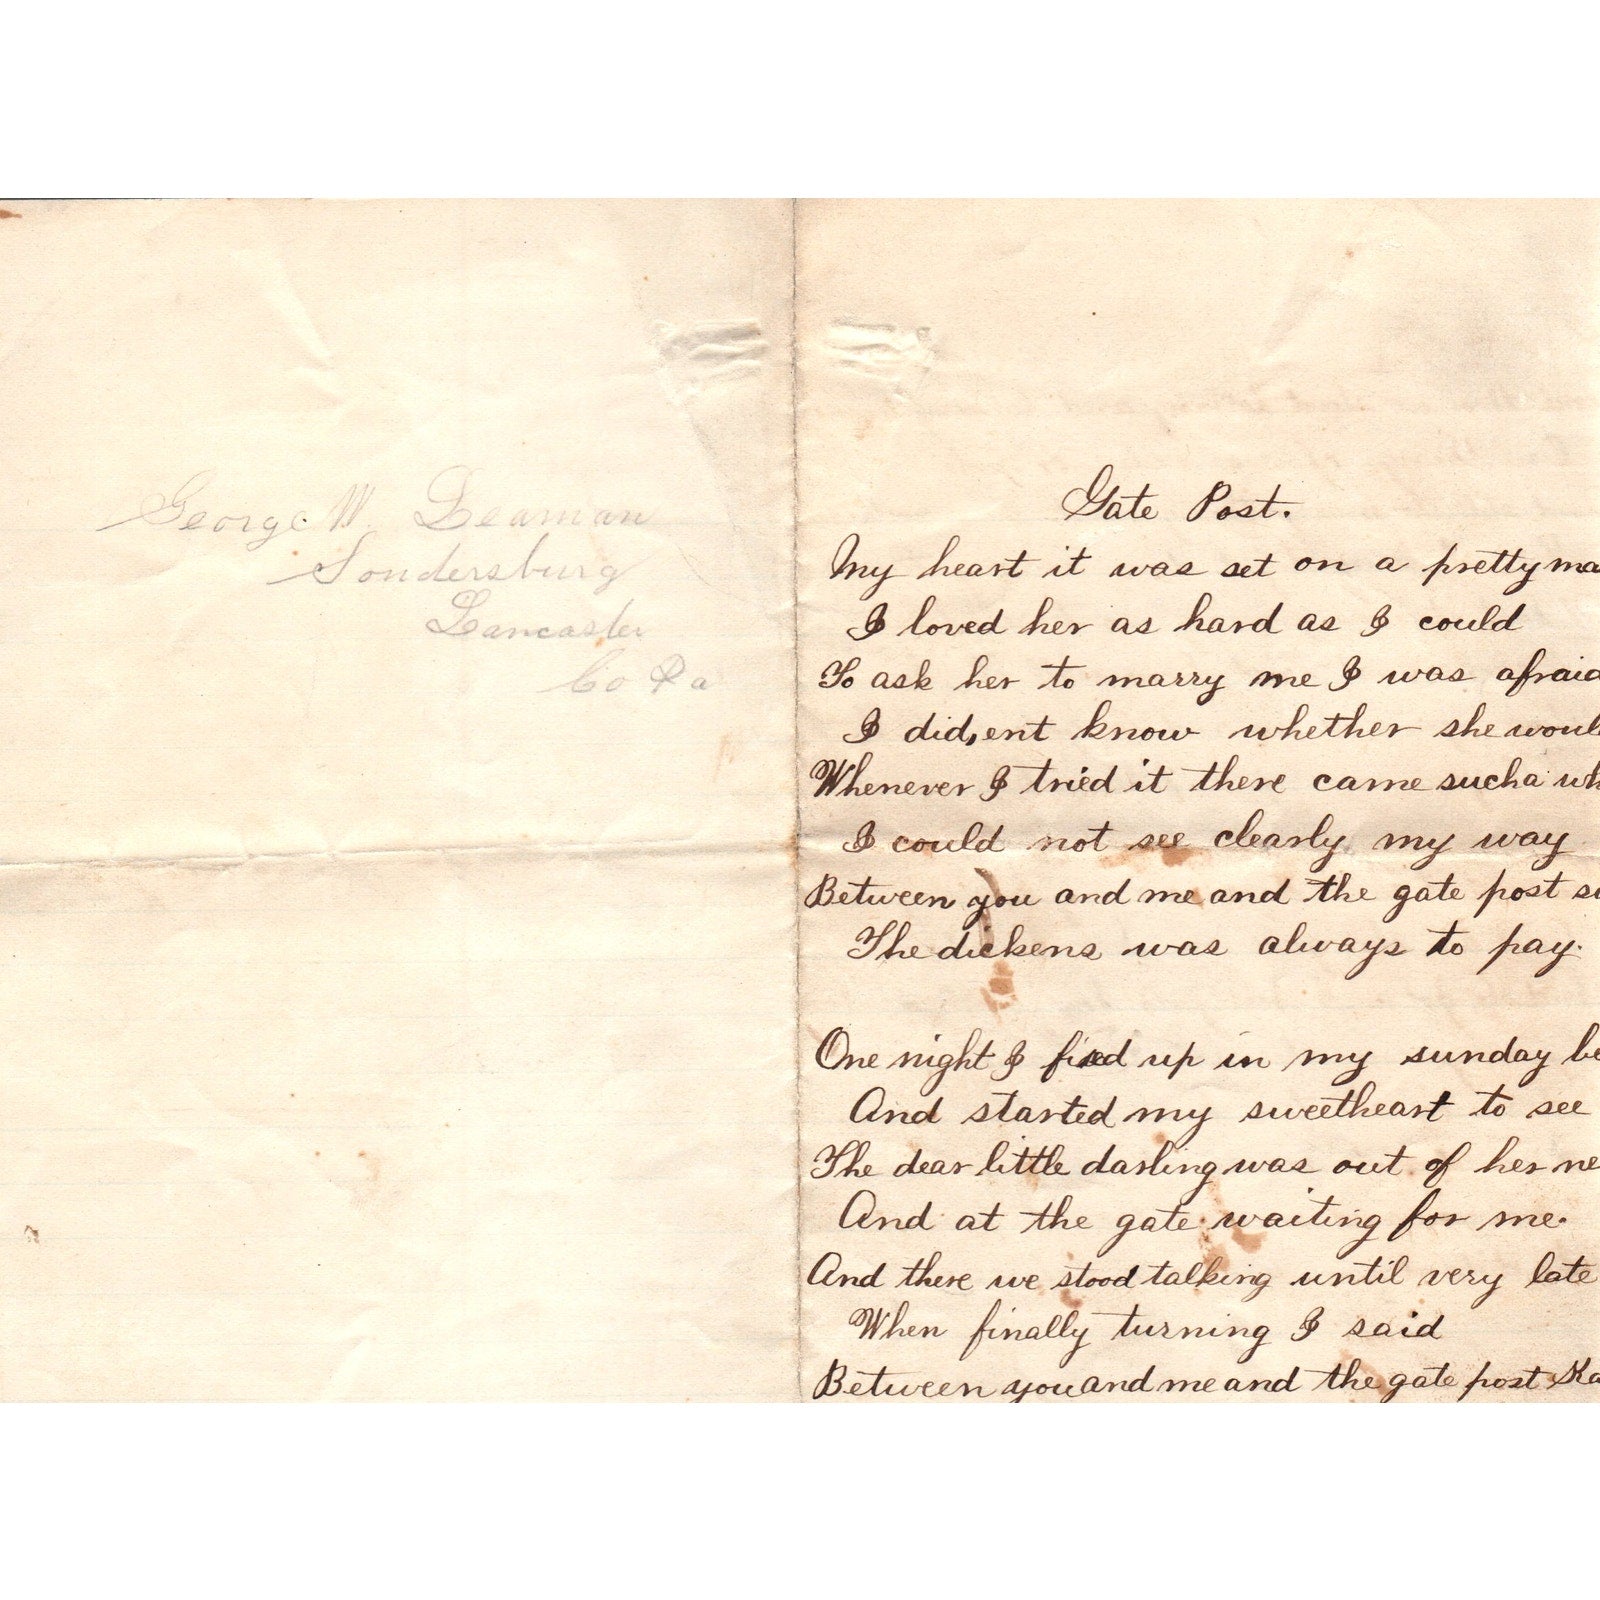 George W. Leaman
Sondersburg
Lancaster
Co Pa
Gate Post.
My heart it was set on a pretty ma
I loved her as hard as I could
To ask her to marry me I was afraid
I did,ent know whether she woul
Whenever I tried it there came sucha wh
I could not see clearly my way
Between you and me and the gate post su
The dickens was always to pay.
One night I fixed up in my sunday be
And started my sweetheart to see
The dear little darling was out of her ne
And at the gate waiting for me.
And there we stood talking until very late
When finally turning I said
Between you and me and the gate post Ka